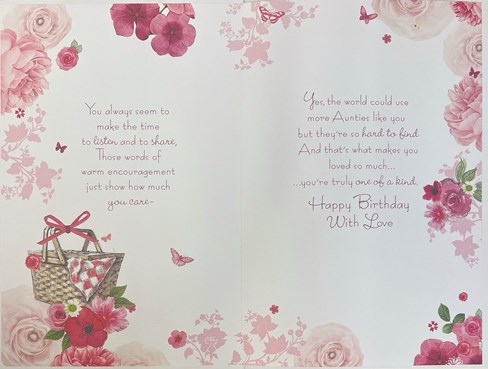 You always seem to
make the time
to listen and to share,
Those words of
warm encouragement
just show how much
you care-
Yes, the world could use
more Aunties like you
but they're so hard to find
And that's what makes you
loved so much...
...you're truly one of a kind.
Happy Birthday
With Love